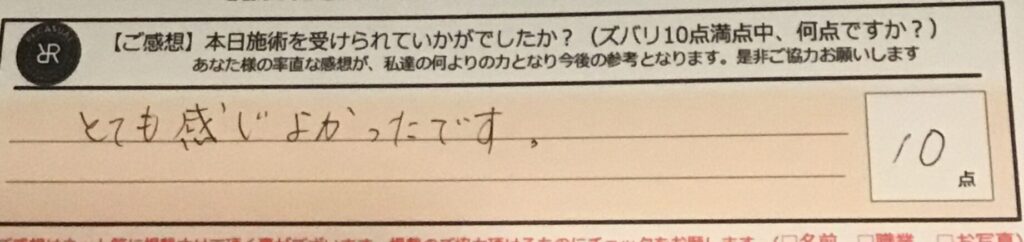 【ご感想】本日施術を受けられていかがでしたか？（ズバリ10点満点中、何点ですか？）
あなた様の率直な感想が、私達の何よりの力となり今後の参考となります。是非ご協力お願いします
とても感じよかったです。
10
点
□名前 □職業 □お写真